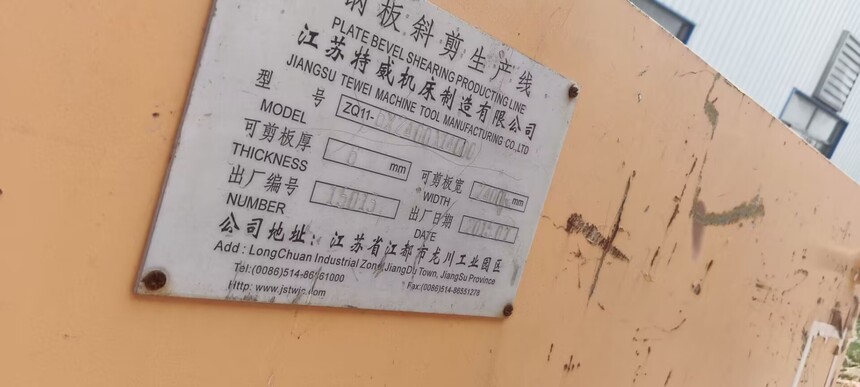 钢板斜剪生产线
PLATE BEVEL SHEARING PRODUCTING LINE
江苏特威机床制造有限公司
JIANGSU TEWEI MACHINE TOOL MANUFACTURING CO.,LTD
型 号 ZQ11-
MODEL
可剪板厚 6 mm 可剪板宽 mm
THICKNESS WIDTH
出厂编号 出厂日期
NUMBER DATE
公司地址: 江苏省江都市龙川工业园区
Add : LongChuan Industrial Zone, JiangDu Town, JiangSu Province
Tel:(0086)514-86561000 Fax:(0086)514-86551278
Http: www.jstwjc.com